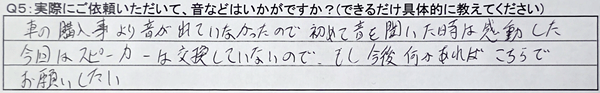 Q5:実際にご依頼いただいて、音などはいかがですか?(できるだけ具体的に教えてください)
車の購入事より音が出ていなかったので初めて音を聞いた時は感動した
今回はスピーカーは交換していないので、もし今後何かあればこちらで
お願いしたい